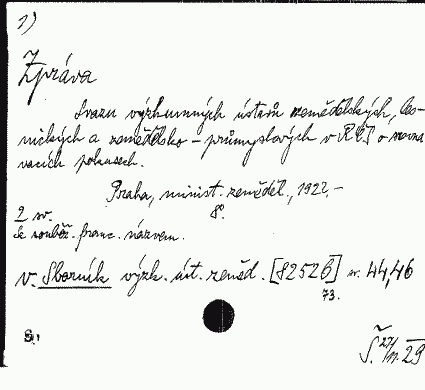 1)
Zpráva
Svazu výzkumných ústavů zemědělských, les-
nických a zemědělsko-průmyslových v RČS o srovná
vacích pokusech.
Praha, minist. zeměděl., 1922.-
8°.
2 sv.
Se souběž. franc. názvem.
v. Sborník výzk. úst. zeměd. [82526] sv. 44,46
73.
S!
Š. 27/11. 29